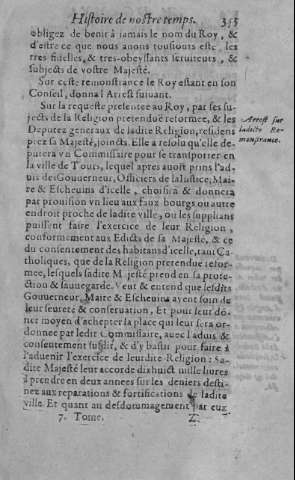 Histoire de nostre temps. 355
obligez de benir à iamais le nom du Roy, &
d'estre ce que nous auons tousiours esté, les
tres fidelles, & tres-obeyssants seruiteurs, &
subjects de vostre Majesté.
Sur ceste remonstrance le Roy estant en son
Conseil, donna l'Arrest suiuant.
Sur la requeste presentee au Roy, par ses su-
jects de la Religion pretenduë reformee, & les
Deputez generaux de ladite Religion, residens
prez sa Majesté, joincts. Elle a resolu qu'elle de-
putera vn Commissaire pour se transporter en
la ville de Tours, lequel apres auoir prins l'ad-
uis des Gouuerneur, Officiers de la Iustice, Mai-
re & Escheuins d'icelle, choisira & donnera
par prouision vn lieu aux faux-bourgs ou autre
endroit proche de ladite ville, où les supplians
puissent faire l'exercice de leur Religion,
conformement aux Edicts de sa Majesté, & ce
du consentement des habitans d'icelle, tant Ca-
tholiques, que de la Religion pretenduë refor-
mee, lesquels sadite Majesté prend en sa prote-
ction & sauuegarde. Veut & entend que lesdits
Gouuerneur, Maire & Escheuins ayent soin de
leur seureté & conseruation, Et pour leur don-
ner moyen d'achepter la place qui leur sera or-
donnee par ledit Commissaire, auec l'aduis &
consentement susdit, & d'y bastir pour faire à
l'aduenir l'exercice de leurdite Religion: Sa-
dite Majesté leur accorde dixhuict mille liures
à prendre en deux annees sur les deniers desti-
nez aux reparations & fortifications de ladite
ville. Et quant au desdommagement par eux
7. Tome. Z
Arrest sur
ladite Re-
monstrance.